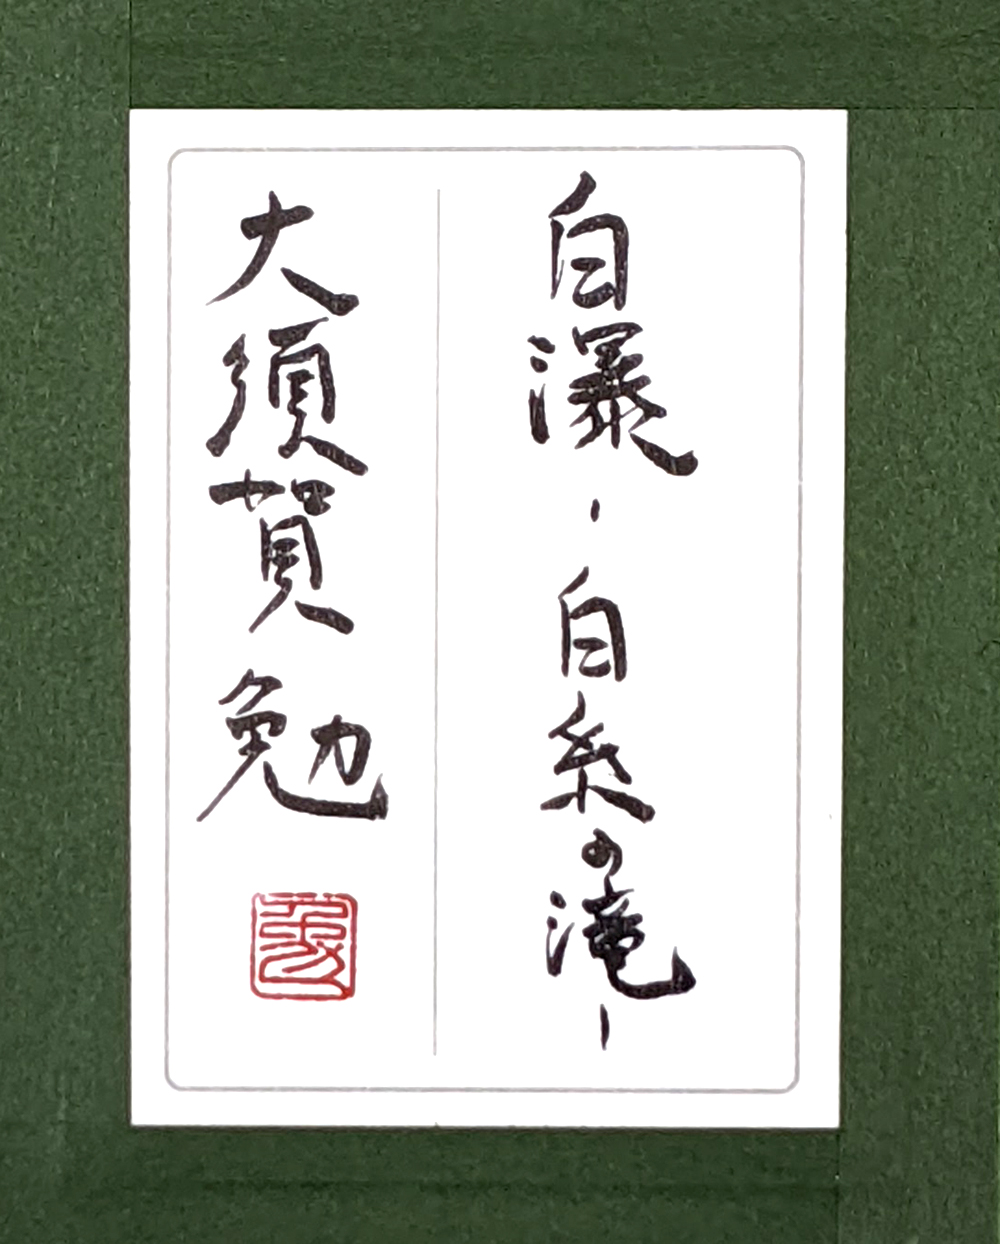 白瀑-白糸の滝-
大須賀勉